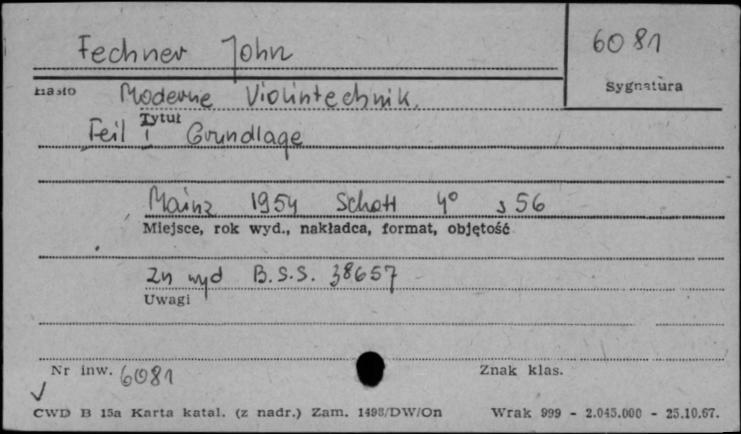 Fechner John
6081
Sygnatura
Hasło
Moderne Violintechnik.
Tytuł
Teil I Grundlage
Mainz 1954 Schott 4° s 56
Miejsce, rok wyd., nakładca, format, objętość
Zn wyd B.S.S. 38657
Uwagi
Nr inw. 6081
Znak klas.
CWD B 15a Karta katal. (z nadr.) Zam. 1498/DW/On Wrak 999 - 2.045.000 - 25.10.67.